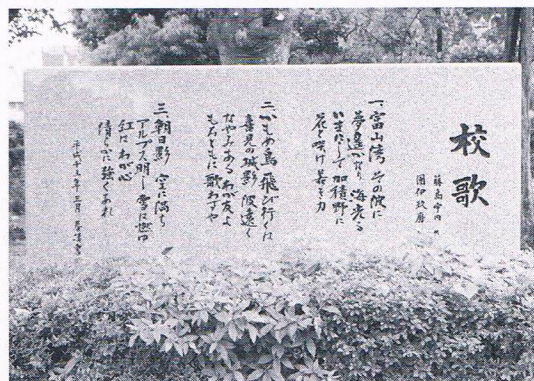 校歌
藤島宇内 作
團伊玖磨
一、富山湾 その波に
夢遥かなり 海光る
いまにして 加積野に
花と咲け 若き力
二、かもめ鳥 飛び行くは
喜見の城影 波遠く
なやみある わが友よ
もろともに 歌わずや
三、朝日影 空に満ち
アルプス明し 雪に燃ゆ
紅は わが心
清らに 強くあれ
平成十三年 三月